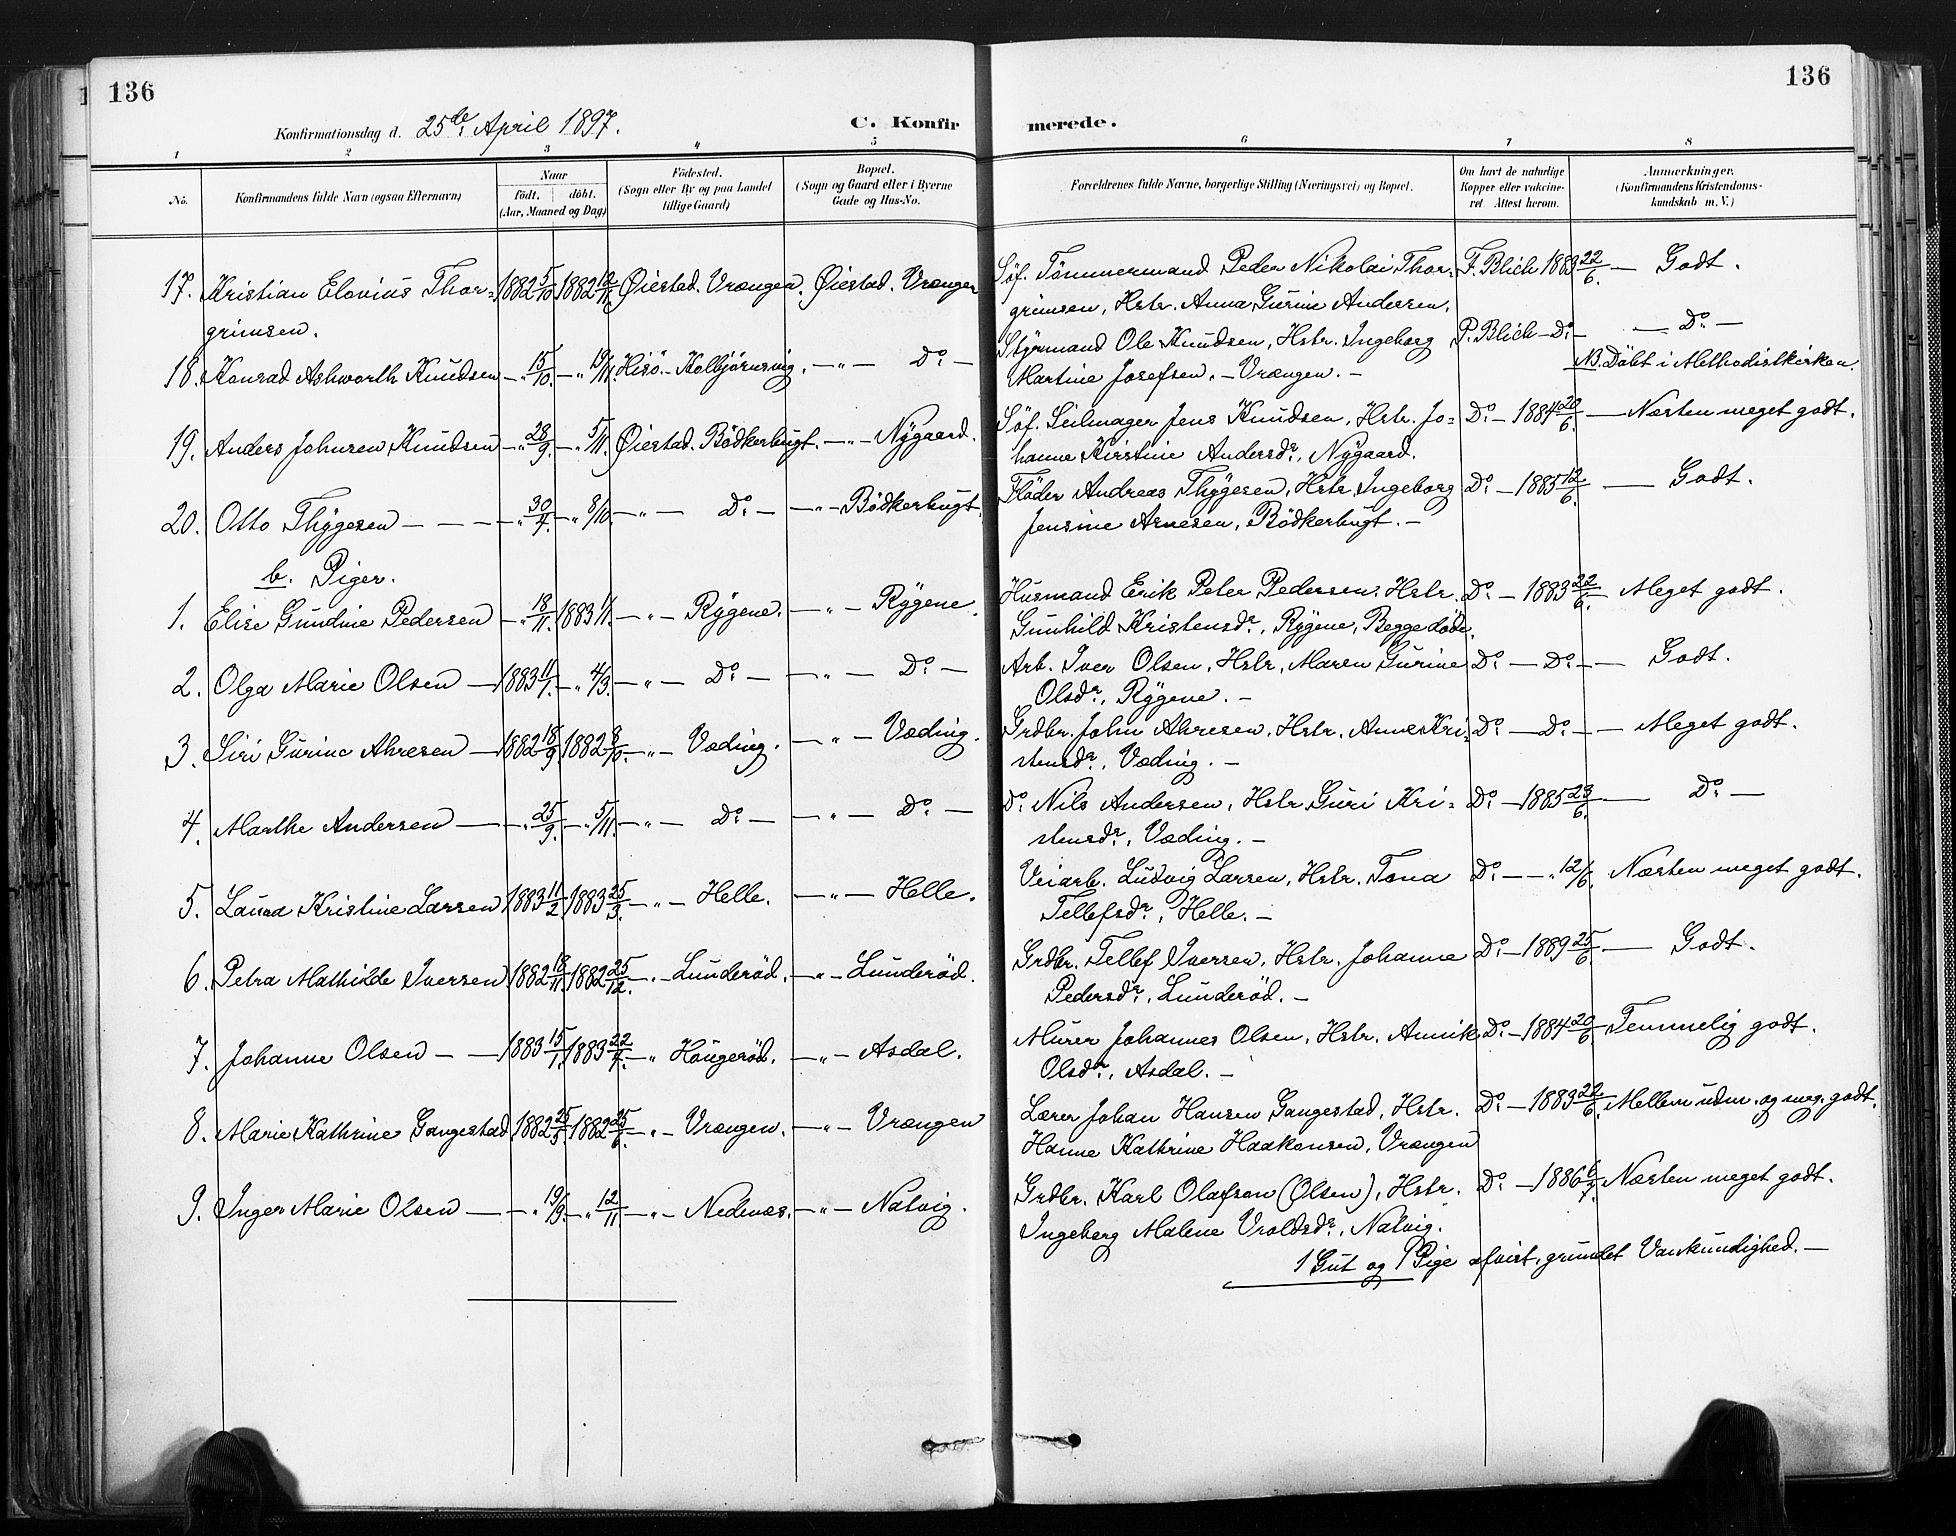 136
136
Konfirmationsdag d. 25de April 1897.
C. Konfirmerede.
1 2 3 4 5 6 7 8
No.
Konfirmandens fulde Navn (ogsaa Efternavn)
Naar
født. døbt.
(Aar, Maaned og Dag)
Fødested.
(Sogn eller By og paa Landet
tillige Gaard)
Bopæl.
(Sogn og Gaard eller i Byerne
Gade og Hus-No.
Forældrenes fulde Navne, borgerlige Stilling (Næringsvei) og Bopæl.
Om havt de naturlige
Kopper eller vakcine-
ret. Attest herom.
Anmærkninger.
(Konfirmandens Kristendoms-
kundskab m. V.)
17. Kristian Elovius Thor- 1882 5/10 1882 12/11 Øiestad. Vrængen. Øiestad. Vrængen Søf. Tømmermand Peder Nikolai Thor- F. Blich 1883 22/6. — Godt.
grimsen. grimsen, Hstr. Anna Gurine Andersen.
18. Konrad Ashworth Knudsen —"— 15/10. —"— 19/11. Hisø.- Kolbjørnsvig. —"— Do — Styrmand Ole Knudsen, Hstr. Ingeborg P. Blich — Do — — Do —
Martine Josefsen. — Vrængen. — NB. Døbt i Methodistkirken.
19. Anders Johnsen Knudsen —"— 28/9. —"— 5/11. Øiestad. Bødkerbugt. —"— Nygaard. Søf. Seilmager Jens Knudsen, Hstr. Jo- Do — 1884 20/6. — Næsten meget godt.
hanne Kirstine Andersdr., Nygaard.
20. Otto Thygesen — — — —"— 30/7. —"— 8/10. —"— Do — —"— Bødkerbugt. Fløder Andreas Thygesen, Hstr. Ingeborg Do — 1885 12/6. — Godt.
Jensine Arnesen, Bødkerbugt. —
b. Piger.
1. Elise Gundine Pedersen —"— 18/11. 1883 1/1. —"— Rygene. —"— Rygene. Husmand Erik Peter Pedersen. Hstr. Do — 1883 22/6. — Meget godt.
Gunhild Kristensdr., Rygene, Begge døde.
2. Olga Marie Olsen — 1883 11/1. —"— 4/3. —"— Do — —"— Do — Arb. Iver Olsen, Hstr. Maren Gurine Do — Do — — Godt.
Olsdr., Rygene. —
3. Siri Gurine Ahresen — 1882 18/9. 1882 8/10. —"— Væding. —"— Væding. Grdbr. John Ahresen, Hstr. Anne Kri- Do — Do — — Meget godt.
stensdr., Væding. —
4. Marthe Andersen — —"— 25/9. —"— 5/11. —"— Do — —"— Do — Do Nils Andersen, Hstr. Guri Kri- Do — 1885 23/6. — Do —
stensdr., Væding. —
5. Laura Kristine Larsen 1883 11/2. 1883 25/3. —"— Helle. —"— Helle. Veiarb. Ludvig Larsen, Hstr. Tona Do — —"— 12/6. Næsten meget godt.
Tellefsdr., Helle. —
6. Petra Mathilde Iversen 1882 18/11. 1882 25/12. —"— Lunderød. —"— Lunderød. Grdbr. Tellef Iversen, Hstr. Johanne Do — 1889 25/6. — Godt.
Pedersdr., Lunderød. —
7. Johanne Olsen — — 1883 15/1. 1883 22/4. —"— Haugerød. —"— Asdal. Murer Johannes Olsen, Hstr. Annik Do — 1884 20/6 Temmelig godt.
Olsdr., Asdal. —
8. Marie Kathrine Gangestad 1882 25/5. 1882 25/6. —"— Vrængen. —"— Vrængen Lærer Johan Hansen Gangestad, Hstr. Do — 1883 22/6. Mellem udm. og meg. godt.
Hanne Kathrine Haakonsen, Vrængen
9. Inger Marie Olsen — —"— 19/9. —"— 12/11. —"— Nedenæs. —"— Natvig. Grdbr. Karl Olafson (Olsen), Hstr. Do — 1886 6/7. Næsten meget godt.
Ingeborg Malene Vroldsdr., Natvig.
1 Gut og 1 Pige afvist, grundet Vankundighed. —